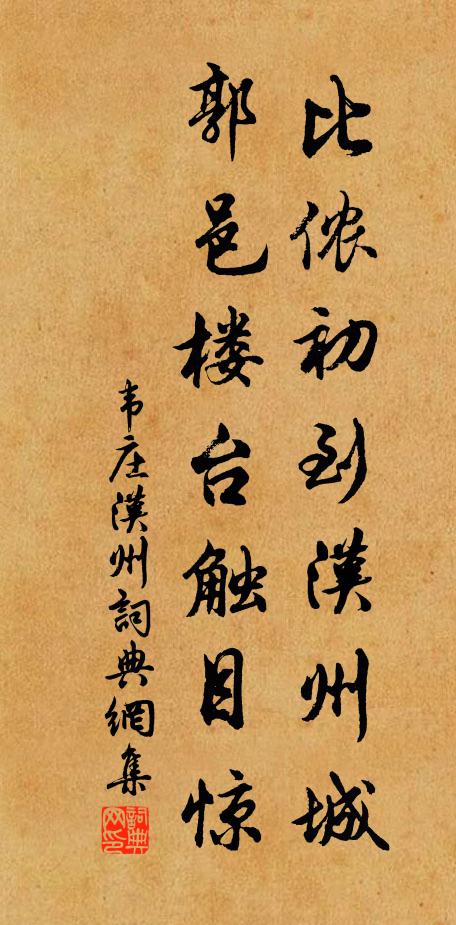 比侬初到漢州城
郭邑楼台触目惊
韦庄漢州詞典網集
詞典网印